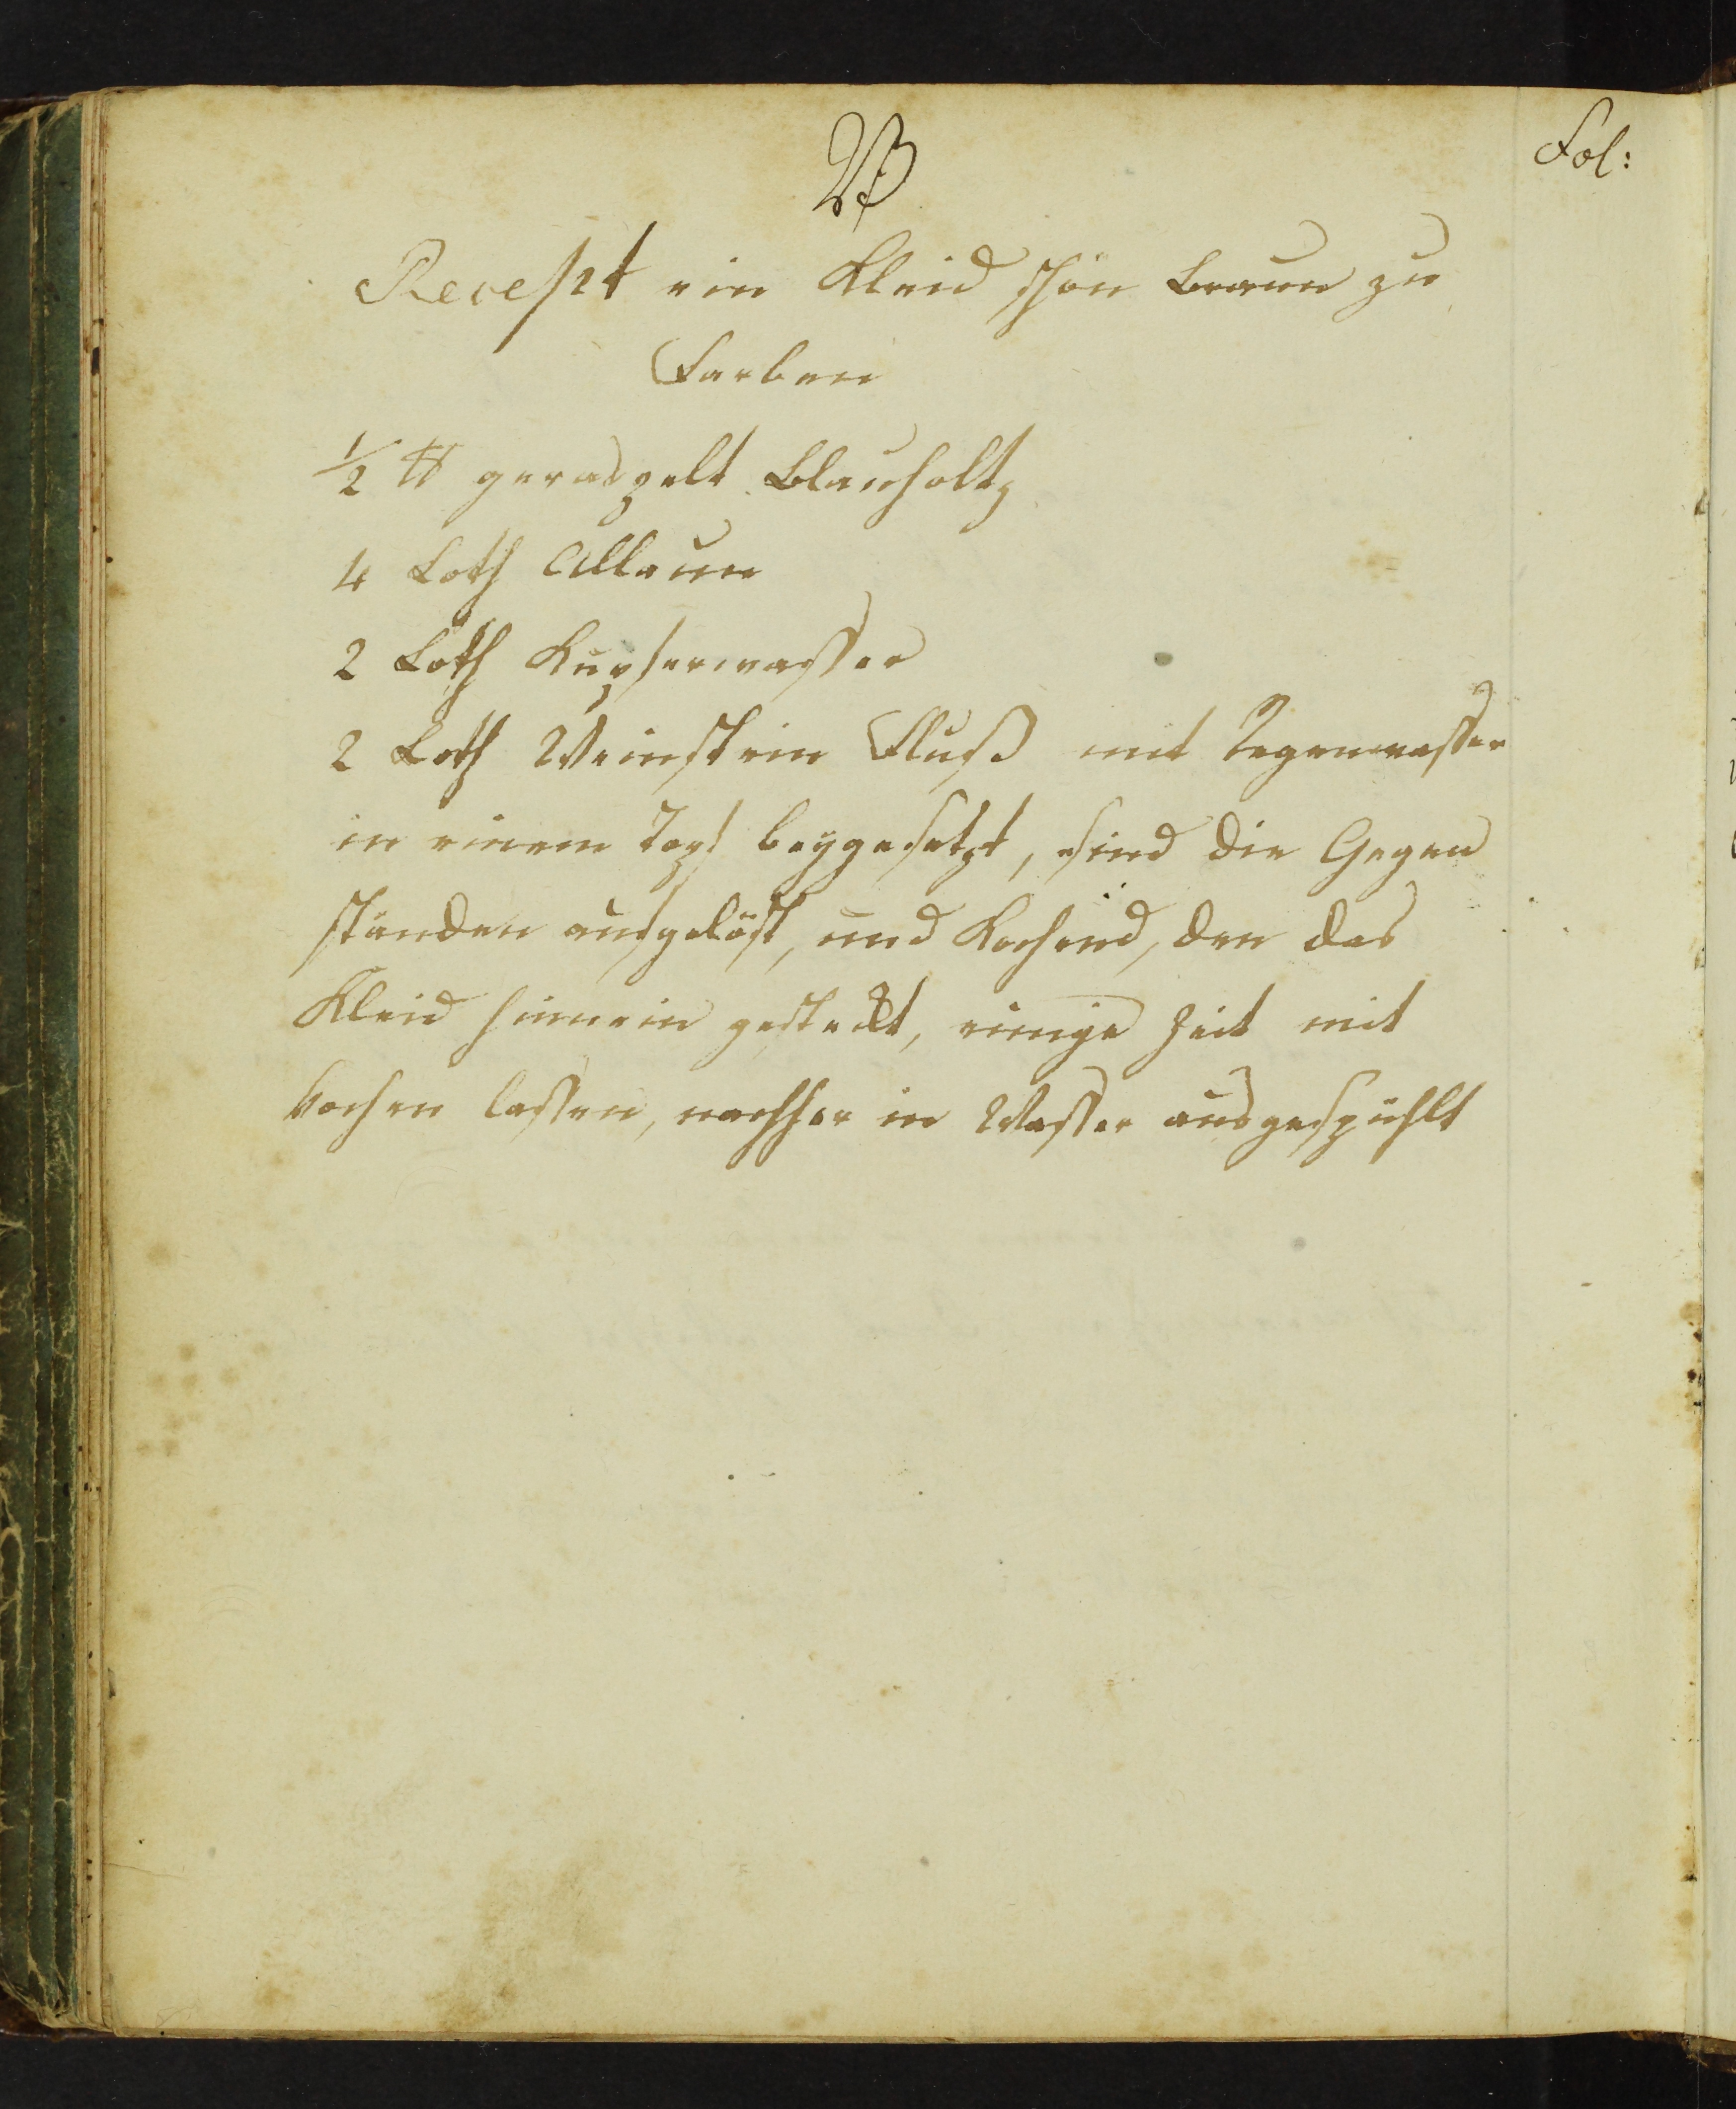 W
Fol:
Recept ein Kleid schön braun zu
Farben
½ ℔ geraspelt Blauholtz
4 Loth Allaun
2 Loth Kupferwasser
2 Loth Weinstein Fluß mit Regenwasser
in einem Topf beygesetzt, sind die Gegen
stånden aufgelößt, und kochend, den das
Kleid hinnein gestekt, einige Zeit mit
kochen lassen, nachher in Wasser ausgespühlt